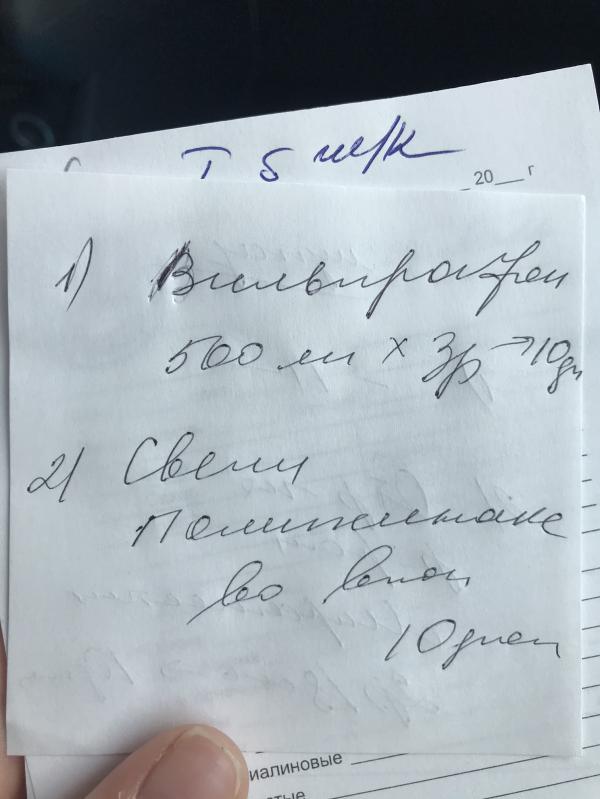 I 5 м/к
20 г
1) Вильпрафен
500 мг х 3р → 10 дн
2) Свечи
Полижинакс
во влаг
10 дней
иалиновые